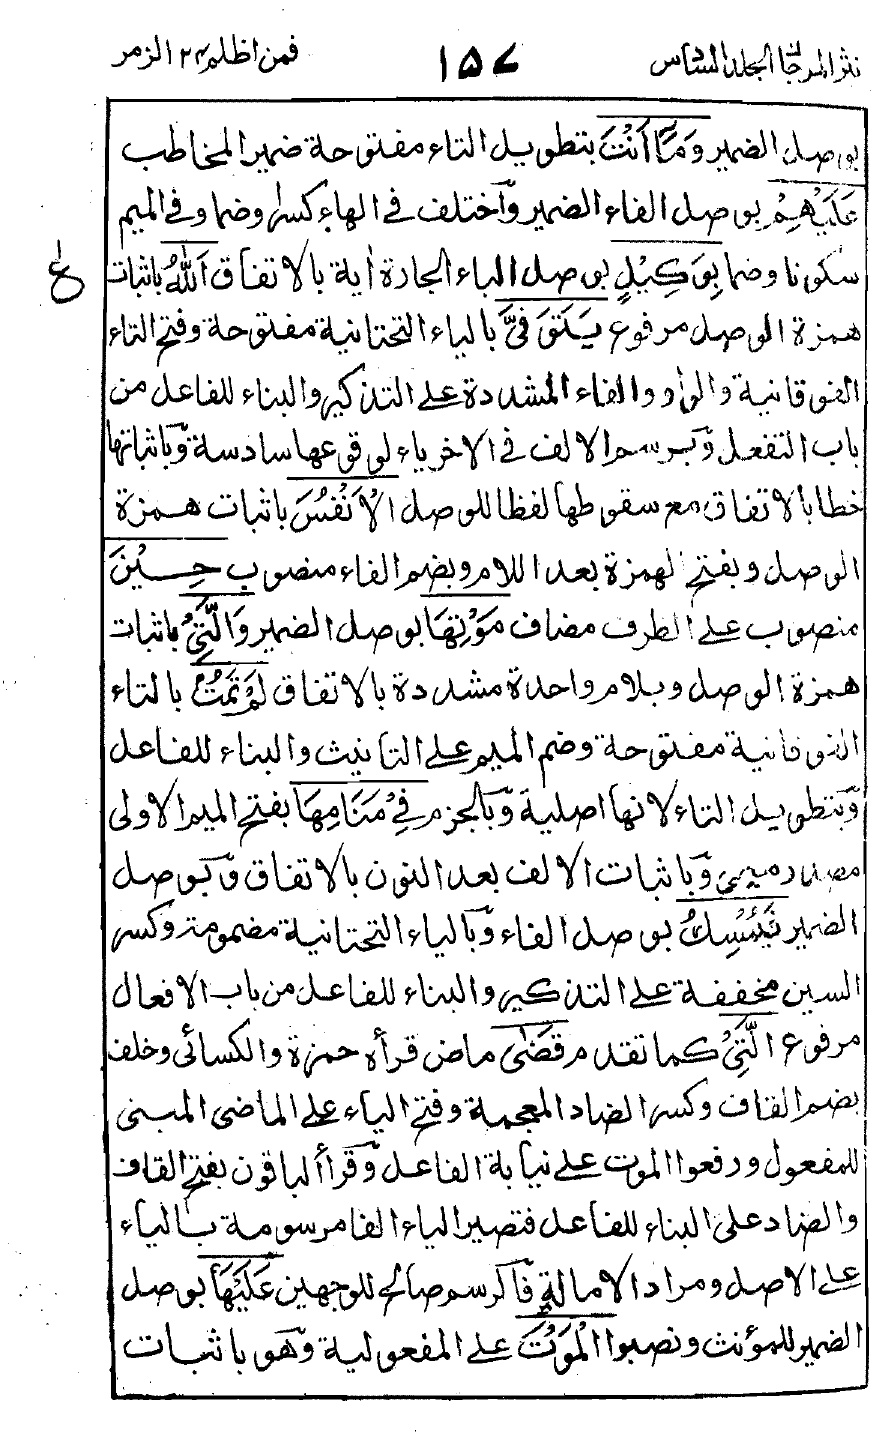 نثر المرجان الجلد السادس ١٥٧ فمن اظلم ٢٤ الزمر
بوصل الضمير وَمَآ اَنْتَ بتطويل التاء مفتوحة ضمير المخاطب
عَلَيْهِمْ بوصل الفاء الضمير واختلف في الهاء كسرا وضما وفي الميم
سكونا وضما بِوَكِيْلٍ بوصل الباء الجارة اٰية بالاتفاق اَللّٰهُ باثبات
ع
همزة الوصل مرفوع يَتَوَفَّى بالياء التحتانية مفتوحة وفتح التاء
الفوقانية والواو والفاء المشددة على التذكير والبناء للفاعل من
باب التفعل وبرسم الالف في الاخر ياء لوقوعها سادسة وباثباتها
خطا بالاتفاق مع سقوطها لفظا للوصل الْاَنْفُسَ باثبات همزة
الوصل وبفتح الهمزة بعد اللام وبضم الفاء منصوب حِيْنَ
منصوب على الظرف مضاف مَوْتِهَا بوصل الضمير وَالَّتِيْ باثبات
همزة الوصل وبلام واحدة مشددة بالاتفاق لَمْ تَمُتْ بالتاء
الفوقانية مفتوحة وضم الميم على التانيث والبناء للفاعل
وبتطويل التاء لانها اصلية وبالجزم فِيْ مَنَامِهَا بفتح الميم الاولى
مصدر ميمي وباثبات الالف بعد النون بالاتفاق وبوصل
الضمير فَيُمْسِكُ بوصل الفاء وبالياء التحتانية مضمومة وكسر
السين مخففة على التذكير والبناء للفاعل من باب الافعال
مرفوع الَّتِيْ كما تقدم قَضٰى ماض قرأه حمزة والكسائى وخلف
بضم القاف وكسر الضاد المعجمة وفتح الياء على الماضى المبنى
للمفعول ورفعوا الموت على نيابة الفاعل وقرأ الباقون بفتح القاف
والضاد على البناء للفاعل فتصير الياء الفا مرسومة بالياء
على الاصل ومراد الامالة فالرسم صالح للوجهين عَلَيْهَا بوصل
الضمير للمؤنث ونصبوا الْمَوْتَ على المفعولية وهو باثبات